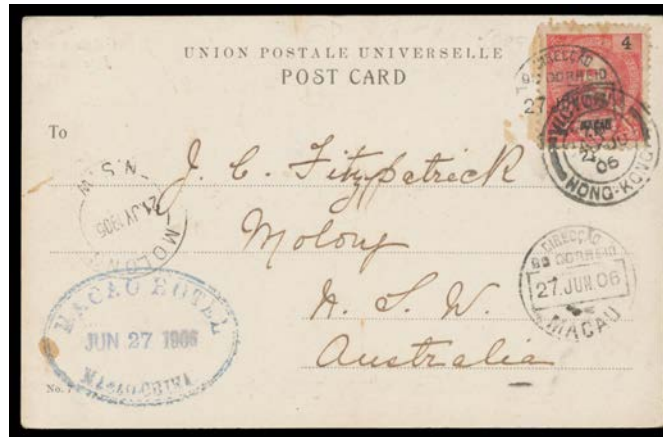 UNION POSTALE UNIVERSELLE
POST CARD
4
DIRECÇÃO
DO CORREIO
27 JUN
VICTORIA
06
HONG-KONG
To
J. C. Fitzpatrick
Molong
N. S. W.
Australia
N.S.W
21 JY 1906
MOLONG
DIRECÇÃO
DO CORREIO
27.JUN.06
MACAU
MACAO HOTEL
JUN 27 1906
MACAO-CHINA
No.